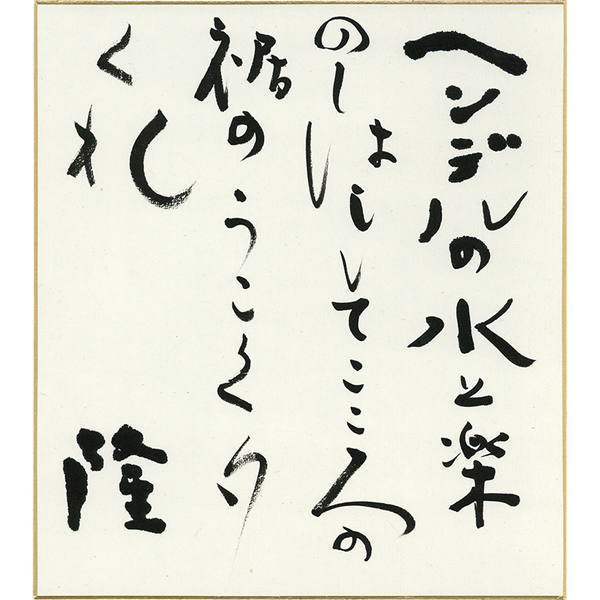 ヘンデルの水上楽
のしはししてこころの
裾のうこく夕
くれ
隆